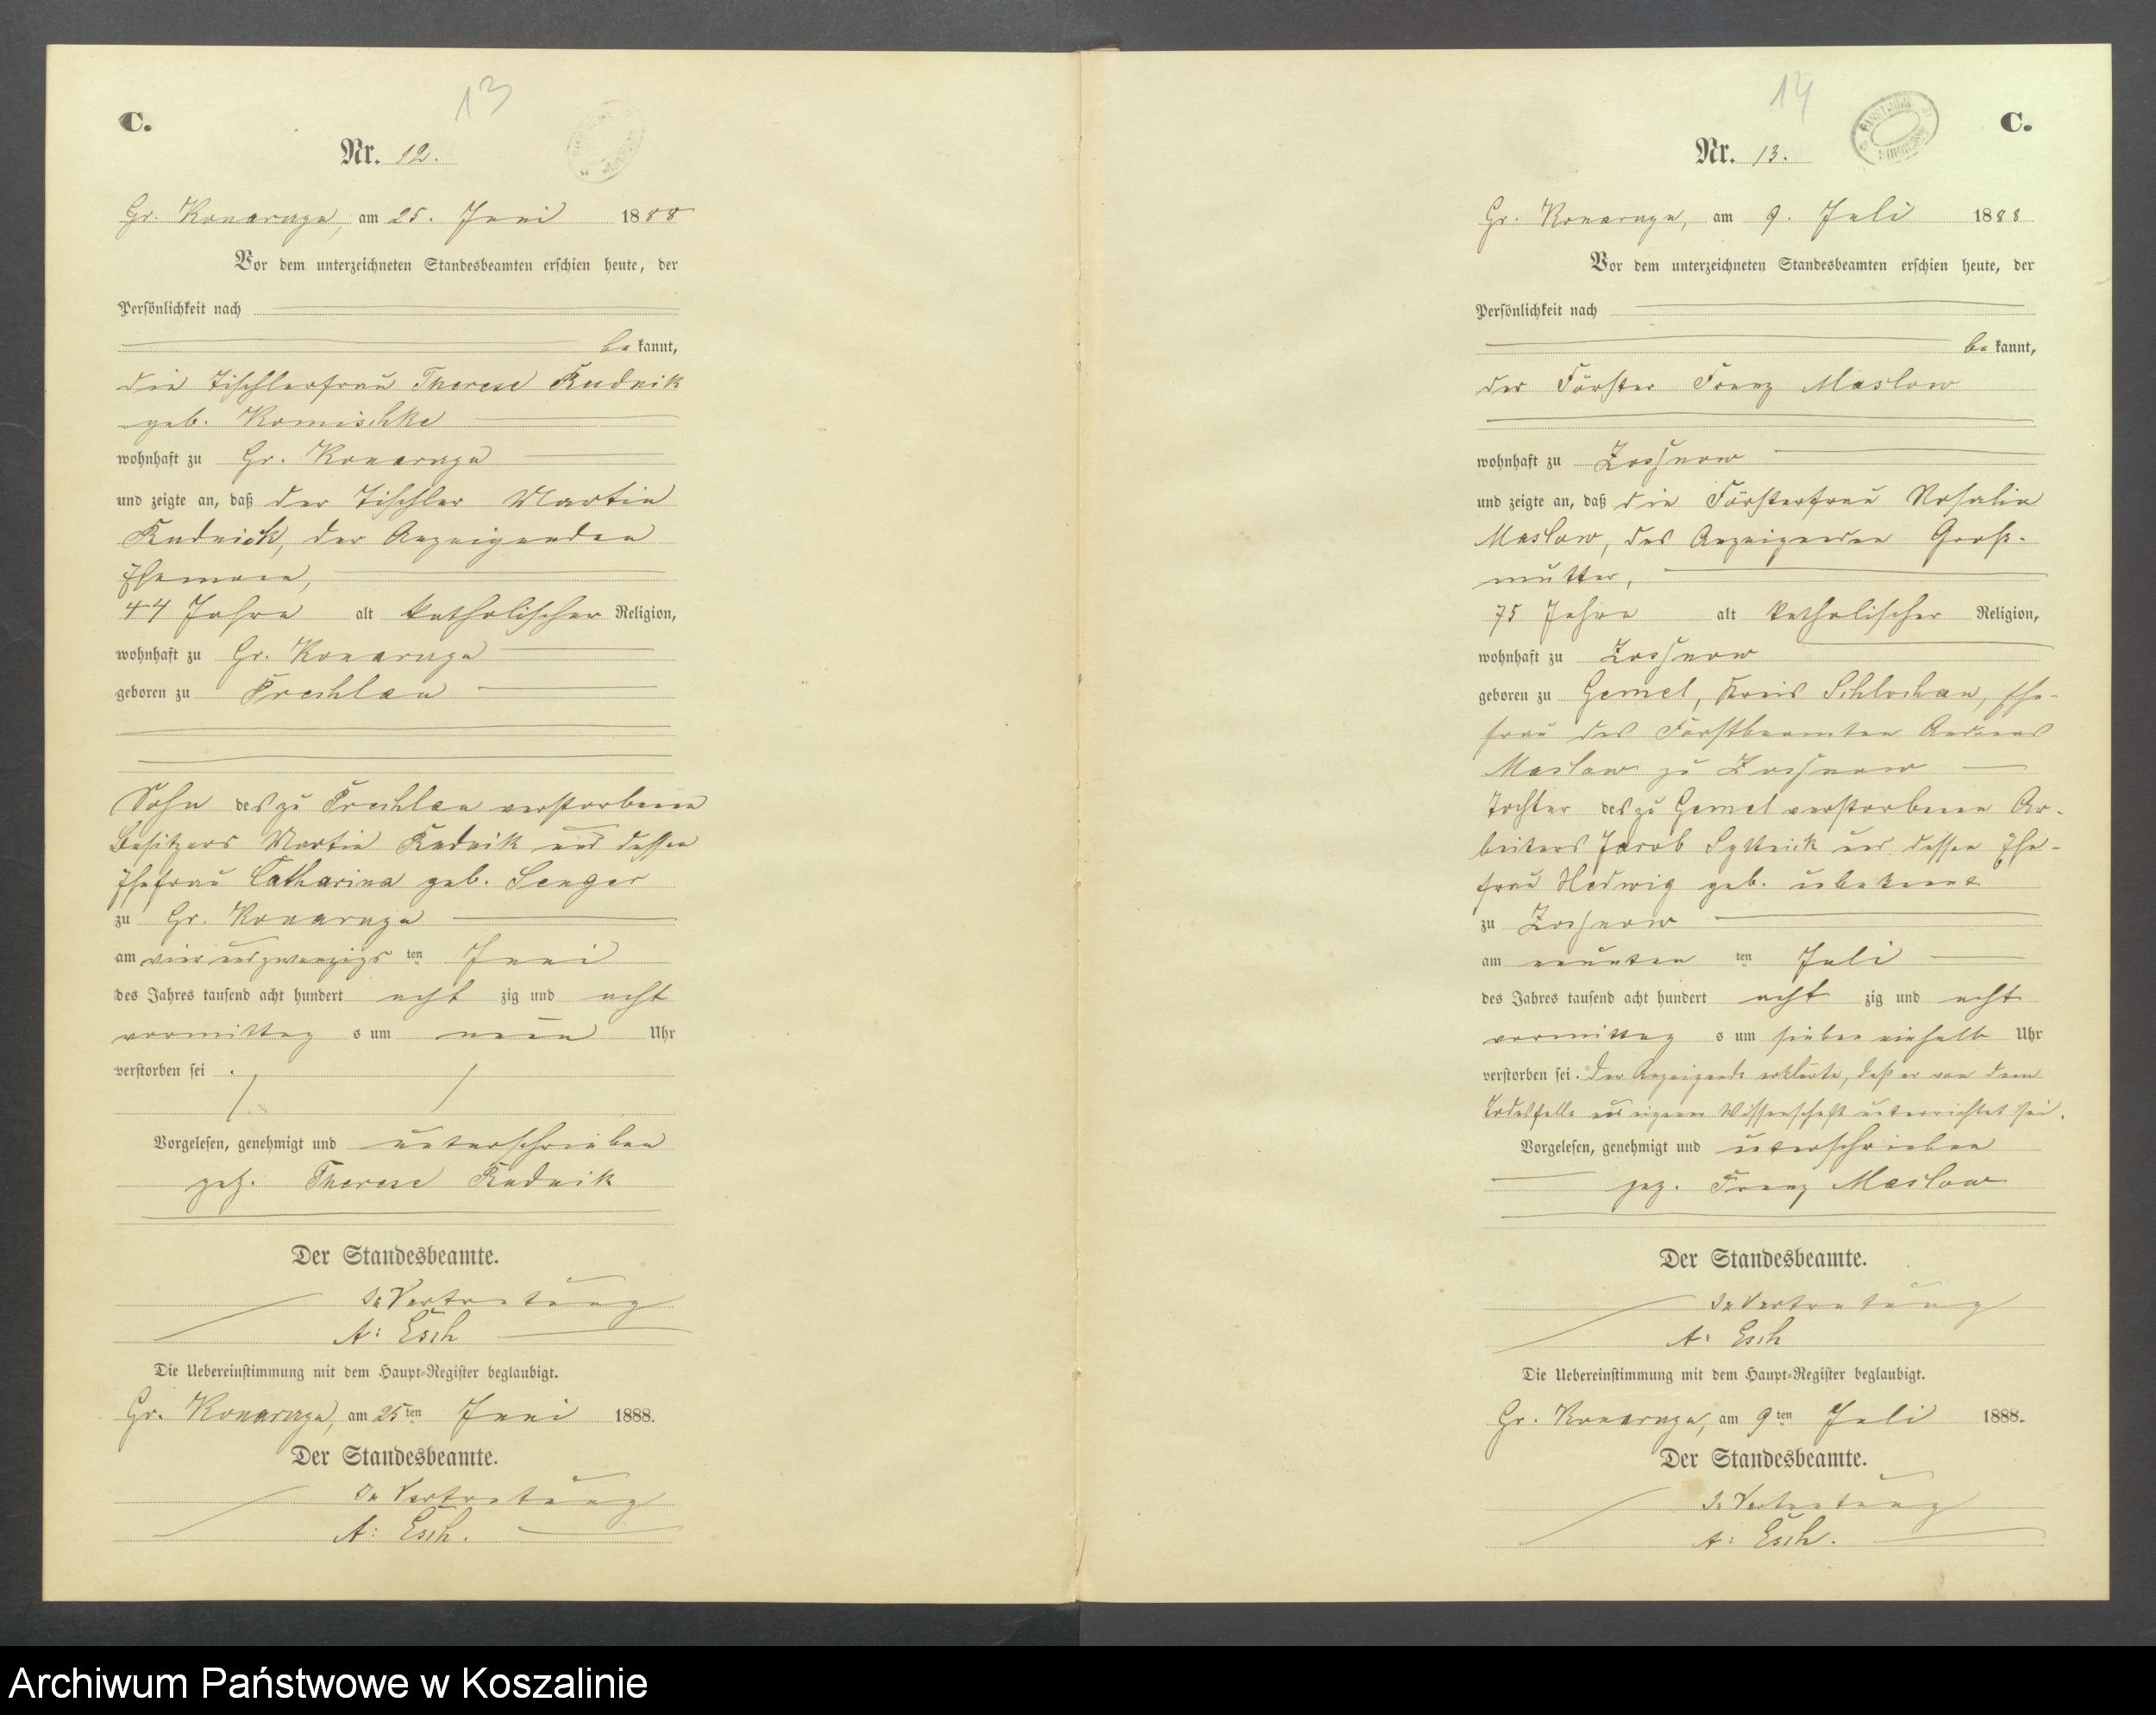 13
C.
Nr. 12.
Gr. Konarczyn, am 25. Juni 1888
Vor dem unterzeichneten Standesbeamten erschien heute, der
Persönlichkeit nach
be kannt,
die Tischlerfrau Therese Rudnik
geb. Komischke
wohnhaft zu Gr. Konarczyn
und zeigte an, daß der Tischler Martin
Rudnick, der Anzeigenden
Ehemann,
44 Jahre alt katholischer Religion,
wohnhaft zu Gr. Konarczyn
geboren zu Prechlau
Sohn des zu Prechlau verstorbenen
Besitzers Martin Rudnik und dessen
Ehefrau Catharina geb. Senger
zu Gr. Konarczyn
am vier und zwanzigs ten Juni
des Jahres tausend acht hundert acht zig und acht
vormittag s um neun Uhr
verstorben sei .
Vorgelesen, genehmigt und unterschrieben
gez. Therese Rudnik
Der Standesbeamte.
In Vertretung
A: Esch
Die Uebereinstimmung mit dem Haupt-Register beglaubigt.
Gr. Konarczyn, am 25ten Juni 1888.
Der Standesbeamte.
In Vertretung
A: Esch.
14
C.
Nr. 13.
Gr. Konarczyn, am 9. Juli 1888
Vor dem unterzeichneten Standesbeamten erschien heute, der
Persönlichkeit nach
be kannt,
der Förster Franz Maslow
wohnhaft zu Zossnow
und zeigte an, daß die Försterfrau Rosalie
Maslow, des Anzeigenden Groß-
mutter,
75 Jahre alt katholischer Religion,
wohnhaft zu Zossnow
geboren zu Gemel, Kreis Schlochau, Ehe-
frau des Forstbeamten Andreas
Maslow zu Zossnow
Tochter des zu Gemel verstorbenen Ar-
beiters Jacob und dessen Ehe-
frau Hedwig geb. unbekannt
zu Zossnow
am neunten ten Juli
des Jahres tausend acht hundert acht zig und acht
vormittag s um sieben einhalb Uhr
verstorben sei. Der Anzeigende erklärte, daß er von dem
Todesfalle aus eigener Wissenschaft unterrichtet sei.
Vorgelesen, genehmigt und unterschrieben
gez. Franz Maslow
Der Standesbeamte.
In Vertretung
A: Esch
Die Uebereinstimmung mit dem Haupt-Register beglaubigt.
Gr. Konarczyn, am 9ten Juli 1888.
Der Standesbeamte.
In Vertretung
A: Esch.
Archiwum Państwowe w Koszalinie